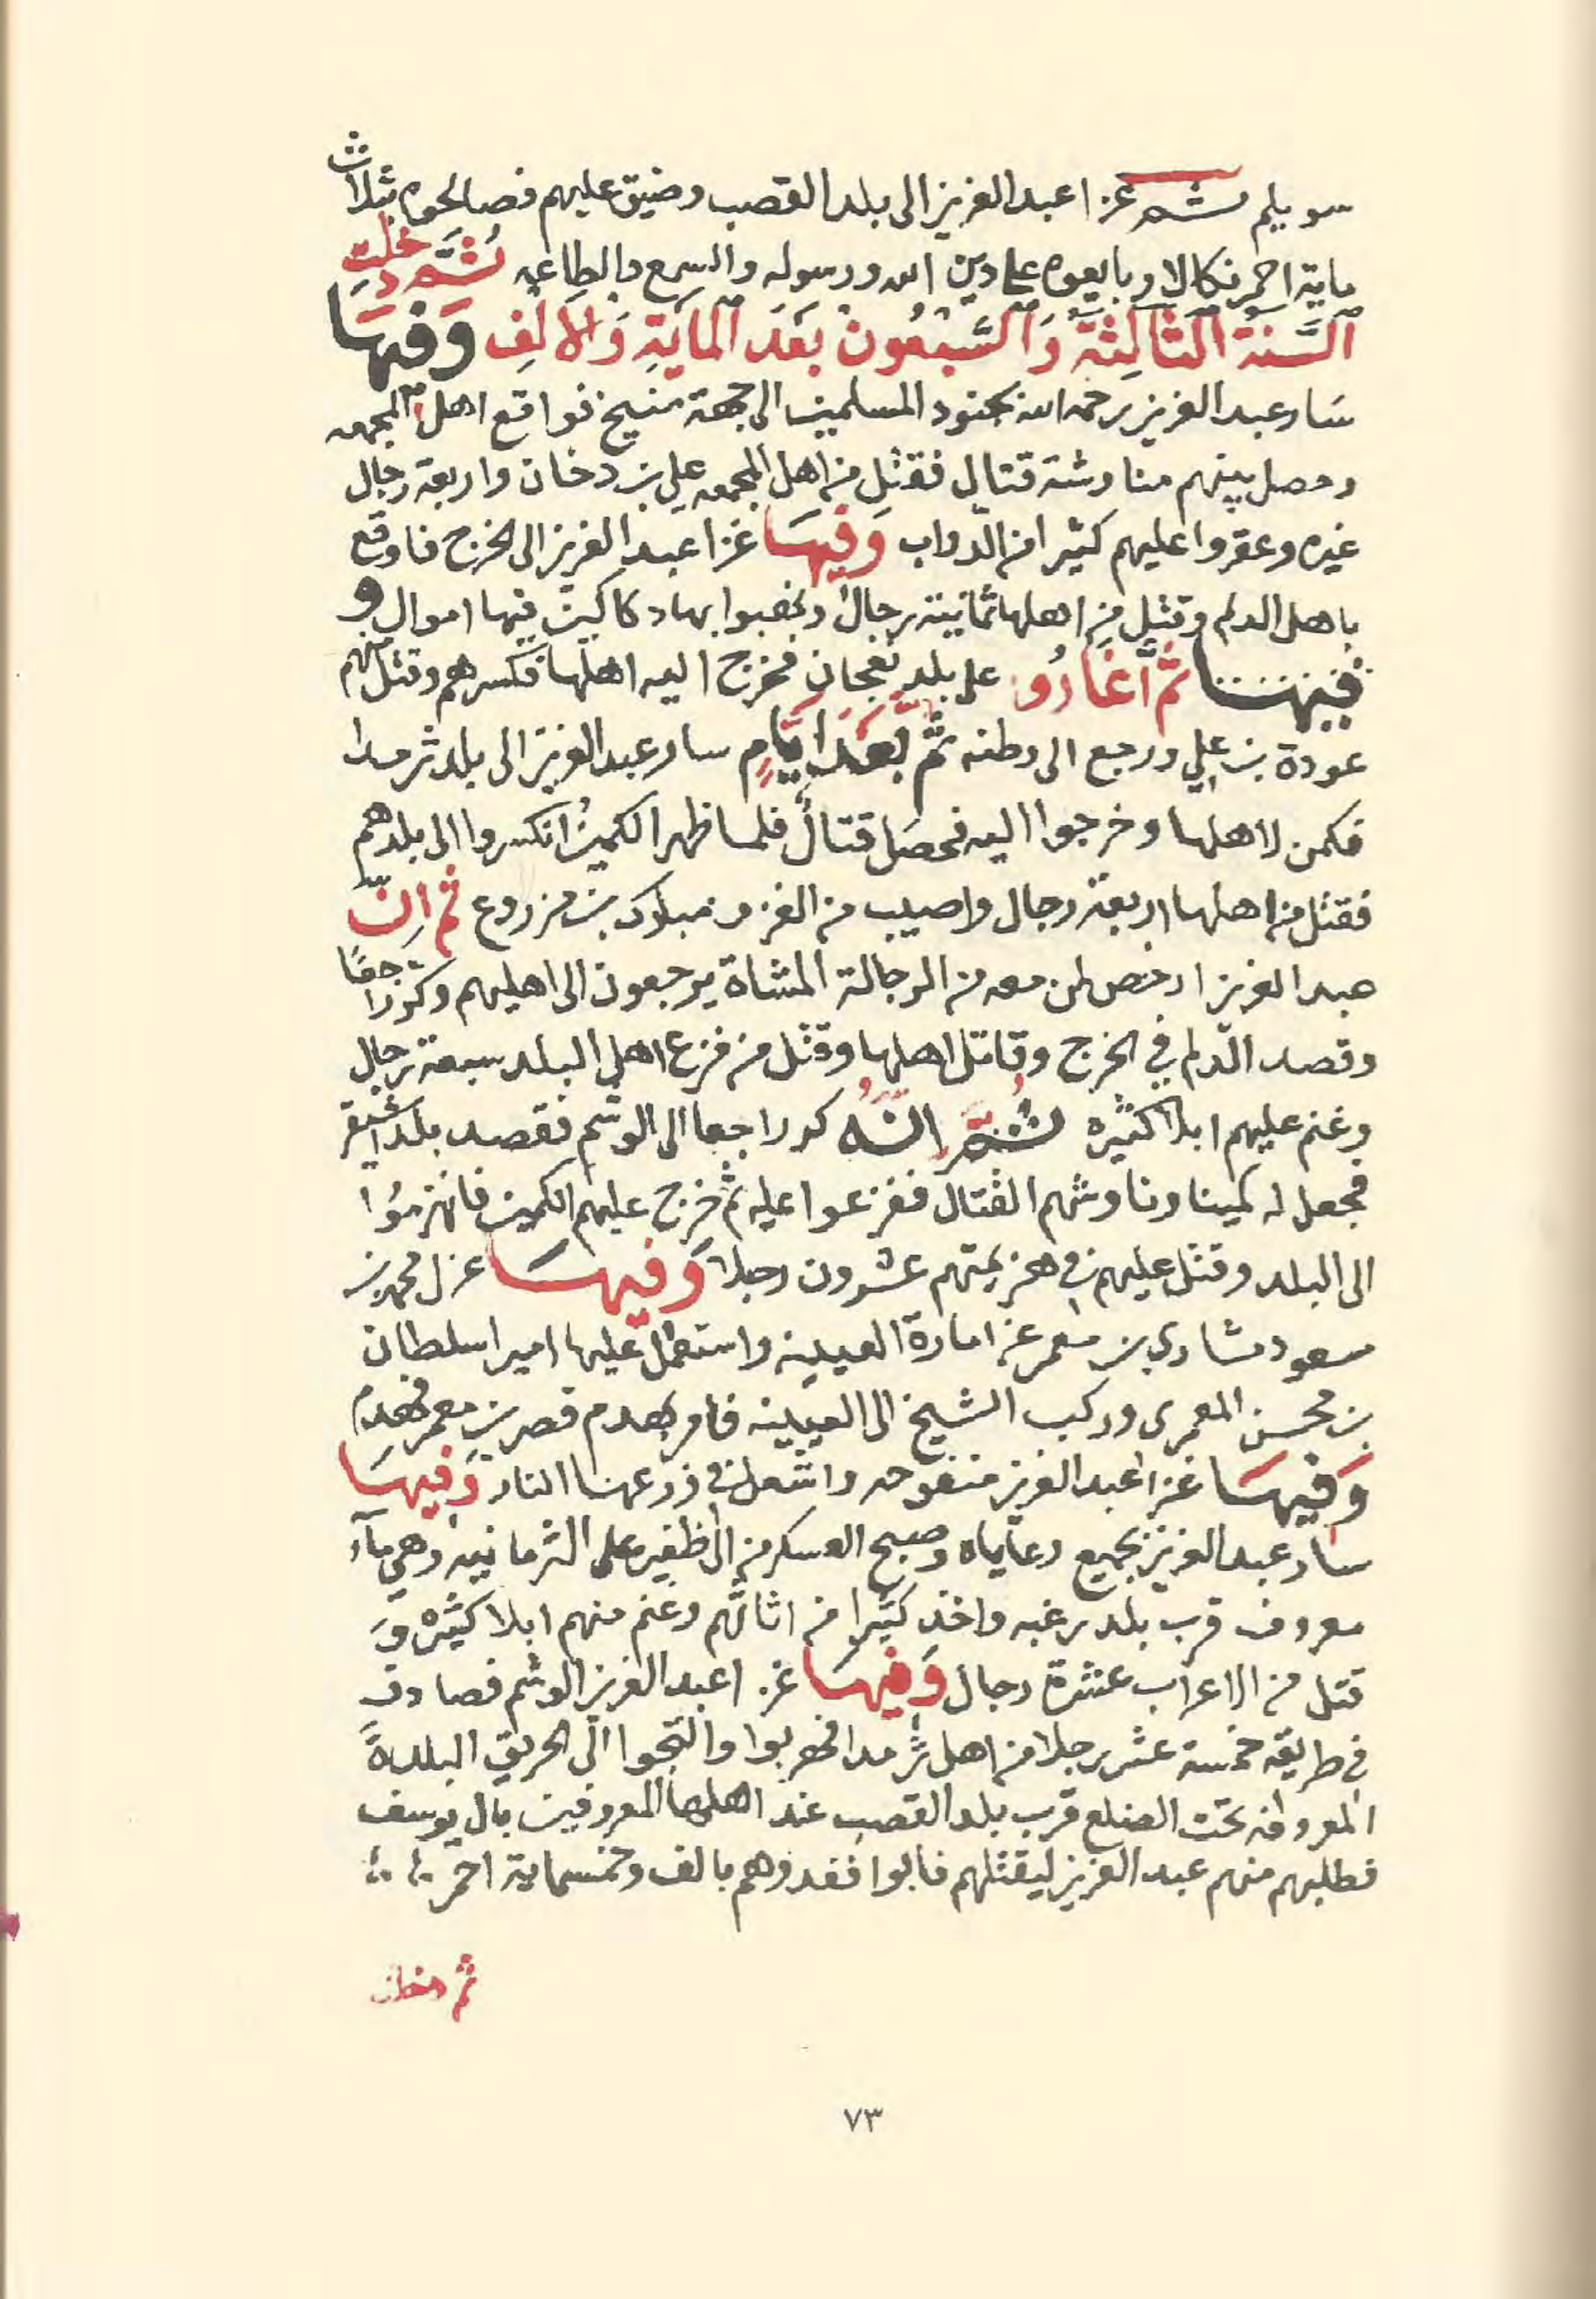 سويلم ثم غزا عبدالعزيز الى بلد القصب وضيق عليهم فصالحوه بثلاث
ماية احمر نكالا وبايعوه على دين الله ورسوله والسمع والطاعه ثُمَّ دخلت
السَّنة الثالِثة وَالسَّبعُونَ بَعدَ المايَةِ وَالالفِ وَفيهَا
سَار عبدالعزيز رحمه الله بجنود المسلمين الى جهة منيخ فواقع اهل المجمعه
وحصل بينهم مناوشة قتال فقتل من اهل المجمعه علي بن دخان واربعة رجال
غيره وعقروا عليهم كثيرا من الدواب وَفيهَا غزا عبدالعزيز الى الخرج فاوقع
باهل الدلم وقتل من اهلها ثمانية رجال ونهبوا بها دكاكين فيها اموال و
فيهنا ثمَّ اغارُو على بلد نعجان فخرج اليه اهلها فكسرهم وقتل منهم
عودة بن علي ورجع الى وطنه ثمَّ بَعدَ ايَّامٍ سار عبدالعزيز الى بلد ثرمدا
فكمن لاهلها وخرجوا اليه فحصَل قتالٌ فلما ظهر الكمينُ انكسروا الى بلدهم
فقتل من اهلها اربعة رجال واصيب من الغزو مبارك بن مزروع ثم انّ
عبدالعزيز ارخص لمن معه من الرجالة المشاة يرجعون الى اهليهم وكرّ راجعًا
وقصد الدلم في الخرج وقاتل اهلها وقتل من فزع اهل البلد سبعة رجال
وغنم عليهم ابلا كثيره ثُمَّ انَّهُ كر راجعا الى الوشم فقصد بلد اشيقر
فجعل له كمينا وناوشهم القتال ففزعوا عليه ثم خرج عليهم الكمين فانهزمُوا
الى البلد وقتل عليهم في هزيمتهم عشرون رجلا وَفيهَا عزل محمد بن
سعود مشاري بن معمر عن امارة العيينه واستعمل عليها اميرا سلطان
بن محسن المعمرى وركب الشيخ الى العيينه فامر بهدم قصر بن معمر فهدم
وَفيهَا غزا عبدالعزيز منفوحه واشعل في زرعها النار وَفيهَا
سار عبدالعزيز بجميع رعاياه وصبح العسكر من الظفير على الثرمانيه وهي مآء
معروف قرب بلد رغبه واخذ كثيرا من اثاثهم وغنم منهم ابلا كثيره وَ
قتل من الاعراب عشرة رجال وَفيهَا غزا عبدالعزيز الوشم فصادف
في طريقه خمسة عشر رجلا من اهل ثرمدا فهربوا والتجوا الى الحريق البلدة
المعروفه تحت الضلع قرب بلد القصب عند اهلها المعروفين بال يوسف
فطلبهم منهم عبدالعزيز ليقتلهم فابوا ففدوهم بالف وخمسماية احمر
ثم دخلت
٧٣